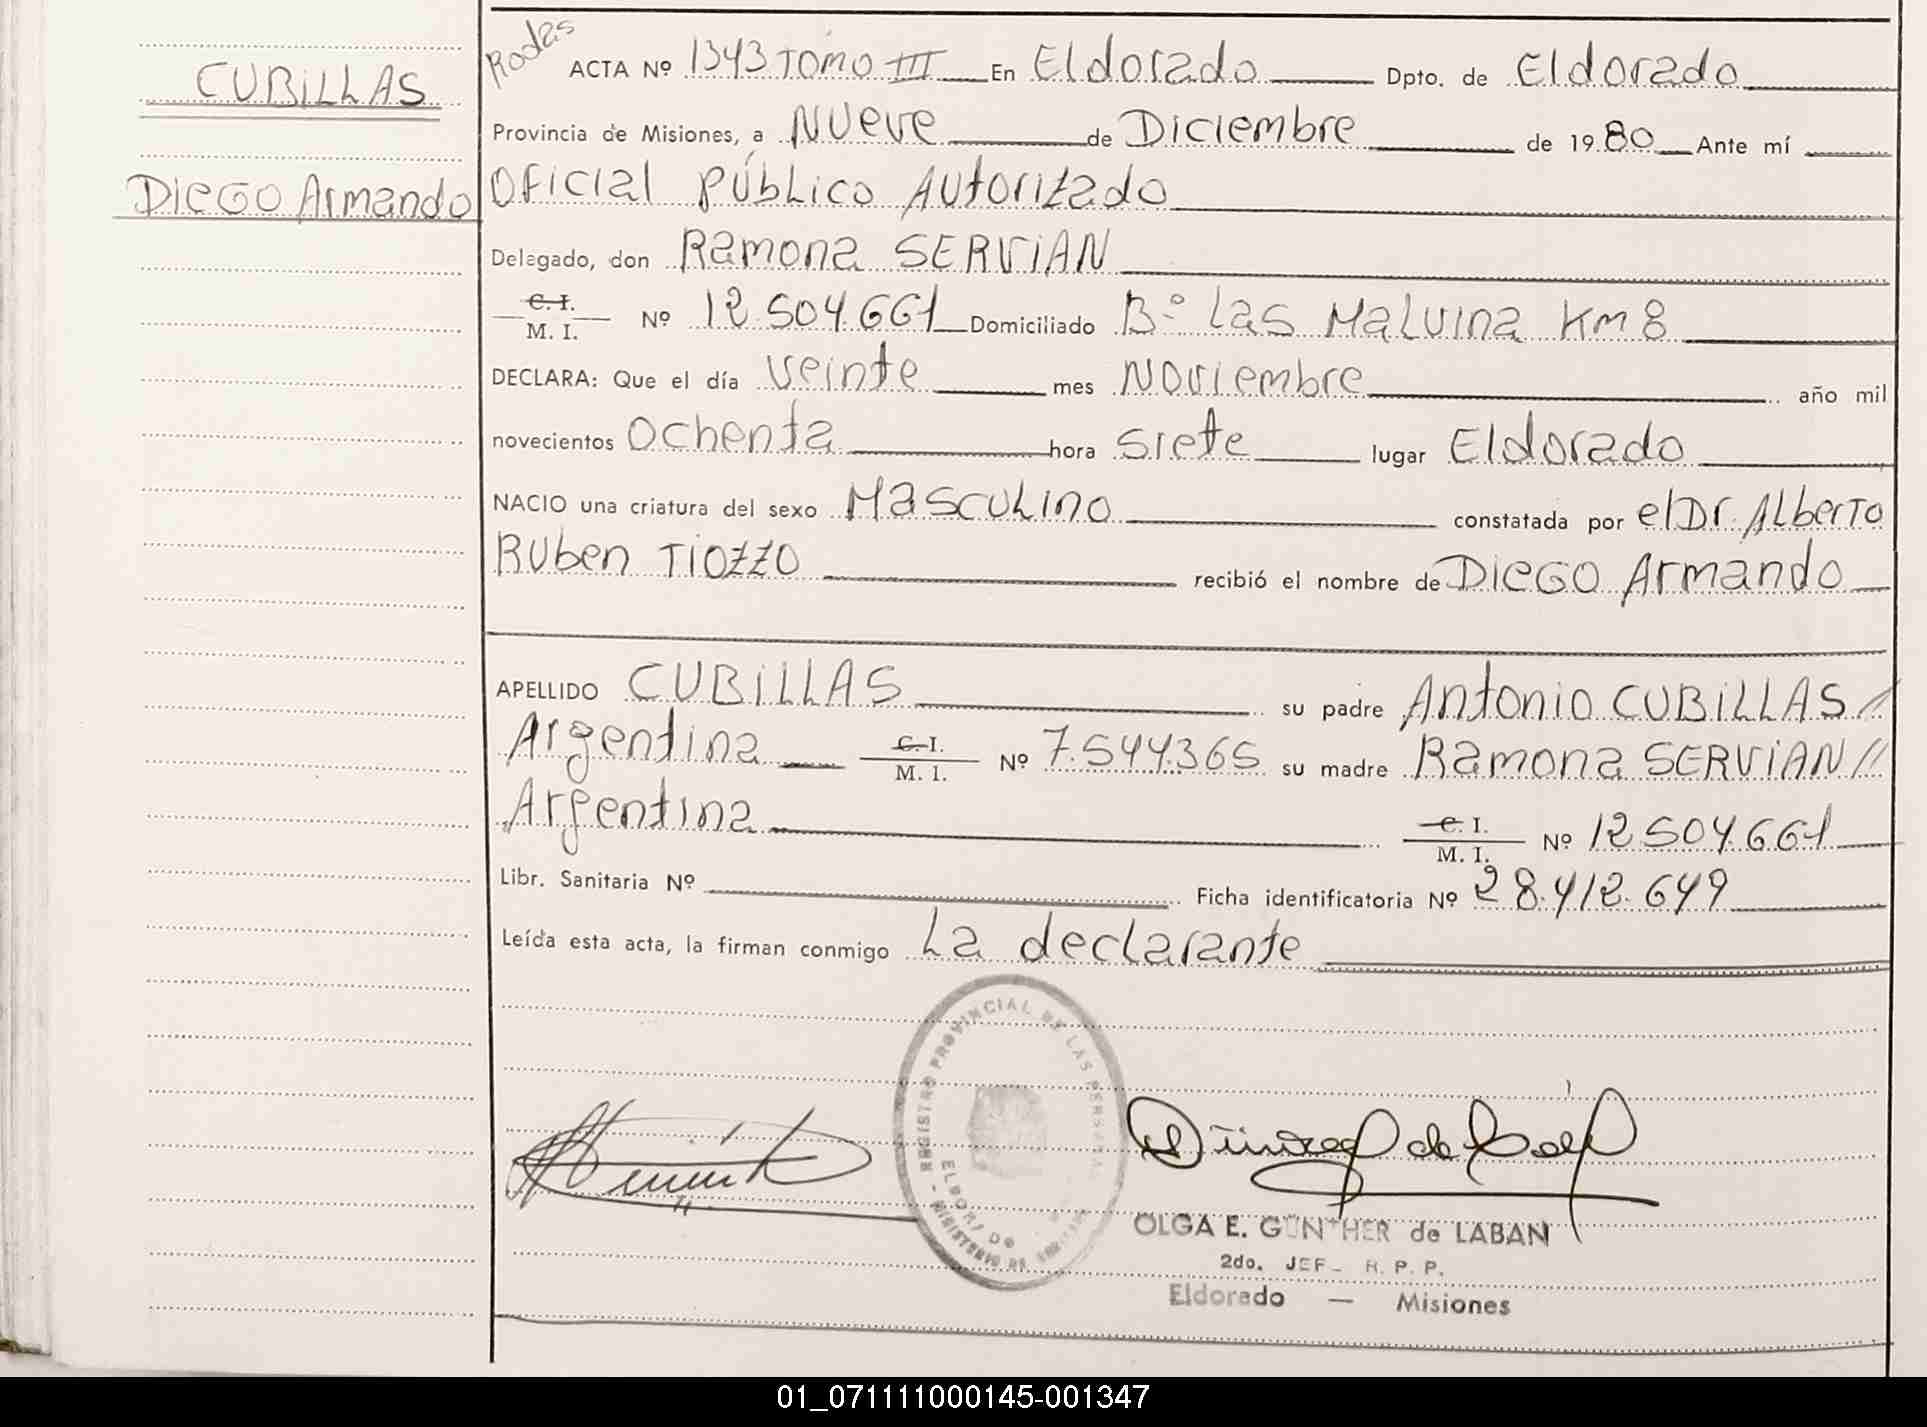 CUBILLAS
Diego Armando
Rodas
ACTA Nº 1343 Tomo III En Eldorado Dpto. de Eldorado
Provincia de Misiones, a Nueve de Diciembre de 1980 Ante mí
Oficial Público Autorizado
Delegado, don Ramona SERVIAN
C. I.
M. I. Nº 12.504.661 Domiciliado Bº Las Malvina Km 8
DECLARA: Que el día veinte mes Noviembre año mil
novecientos Ochenta hora siete lugar Eldorado
NACIO una criatura del sexo Masculino constatada por el Dr. Alberto
Ruben TIOZZO recibió el nombre de Diego Armando
APELLIDO CUBILLAS su padre Antonio CUBILLAS /
Argentina C. I.
M. I. Nº 7.544.365 su madre Ramona SERVIAN //
Argentina C. I.
M. I. Nº 12.504.661
Libr. Sanitaria Nº Ficha identificatoria Nº 28.412.649
Leída esta acta, la firman conmigo La declarante
REGISTRO PROVINCIAL DE LAS PERSONAS
ELDORADO
OLGA E. GÜNTHER de LABAN
2do. JEF R. P. P.
Eldorado — Misiones
01_071111000145-001347